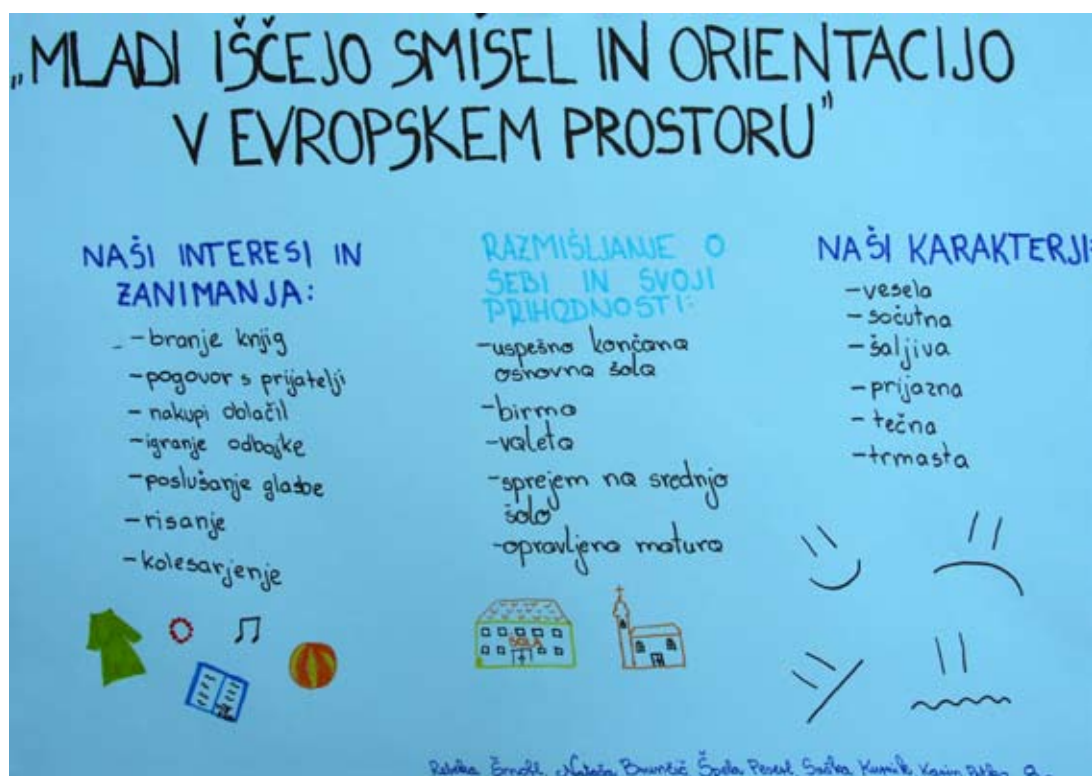 „MLADI IŠČEJO SMISEL IN ORIENTACIJO
V EVROPSKEM PROSTORU"
NAŠI INTERESI IN
ZANIMANJA:
-branje knjig
-pogovor s prijatelji
-nakupi oblačil
-igranje odbojke
-poslušanje glasbe
-risanje
-kolesarjenje
RAZMIŠLJANJE O
SEBI IN SVOJI
PRIHODNOSTI:
-uspešno končana
osnovna šola
-birma
-valeta
-sprejem na srednjo
šolo
-opravljena matura
ŠOLA
NAŠI KARAKTERJI:
-vesela
-sočutna
-šaljiva
-prijazna
-tečna
-trmasta
Nataša Špela